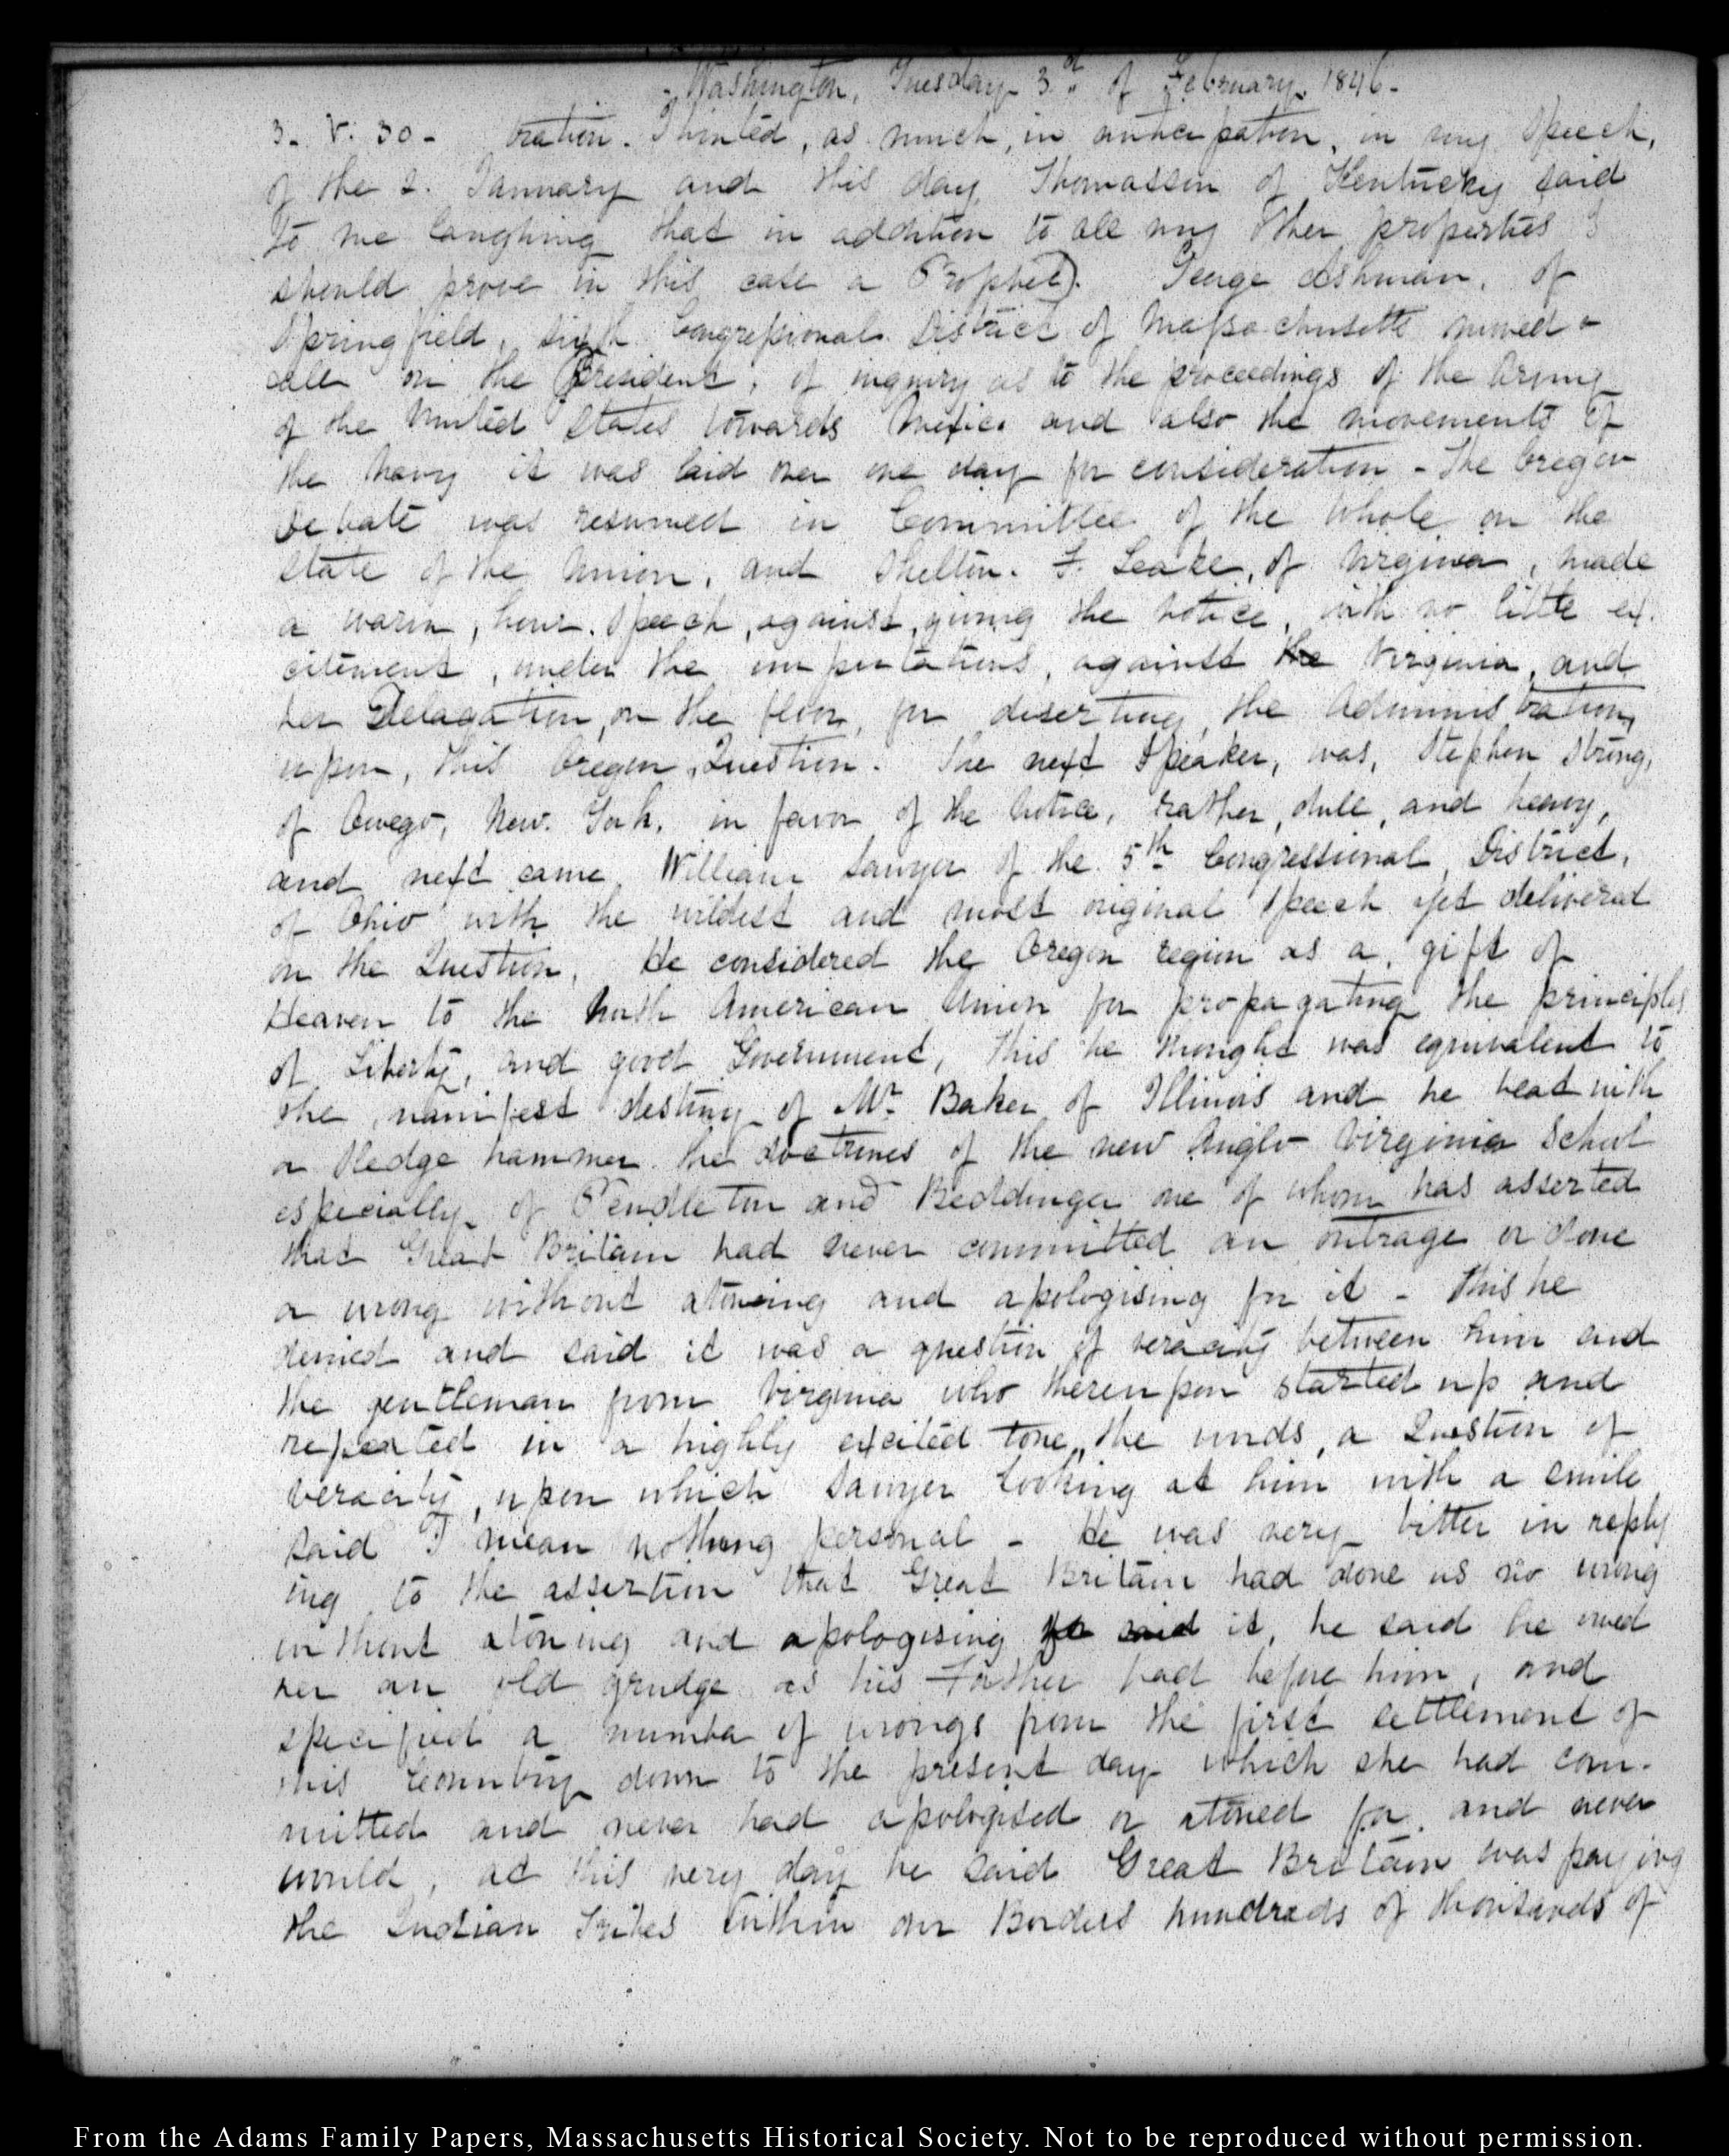 Washington, Tuesday 3d. of February 1846.
3. V. 30 - oration. I hinted, as much, in anticipation, in my speech,
of the 2. January and this day, Thomasson of Kentucky said
to me laughing that in addition to all my other properties I
should prove in this case a Prophet). George Ashmun, of
Springfield, sixth Congressional District of Massachusetts moved a
call on the President, of inquiry as to the proceedings of the Army
of the United States towards Mexico and also the movements of
the Navy it was laid over one day for consideration - The Oregon
debate was resumed in Committee of the Whole on the
state of the Union, and Shelton. F. Leake, of Virginia, made
a warm, hour. speech, against, giving the notice, with no little ex-
citement, under the imputations, against the Virginia, and
her Delagation, on the floor, for deserting, the Administration,
upon, this Oregon, Question. The next speaker, was, Stephen Strong,
of Owego, New. York, in favor of the notice, rather, dull, and heavy,
and next came William Sawyer of the 5th Congressional District,
of Ohio with the wildest and most original speech yet delivered
on the Question, He considered the Oregon region as a, gift of
Heaven to the North American Union for propagating the principles
of Liberty, and good Government, this he thought was equivalent to
the manifest destiny of Mr. Baker of Illinois and he beat with
a sledge hammer the doctrines of the new Anglo Virginia School
especially of Pendleton and Beddinger one of whom has asserted
that Great Britain had never committed an outrage or done
a wrong without atoneing and apologising for it - This he
denied and said it was a question of veracity between him and
the gentleman from Virginia who thereupon started up and
repeated in a highly excited tone, the words, a Question of
veracity, upon which Sawyer looking at him with a smile
said I mean nothing personal - He was very bitter in reply
ing to the assertion that Great Britain had done us no wrong
without atoning and apologising for said it, he said he owed
her an old grudge as his Father had before him, and
specified a number of wrongs from the first settlement of
this Country down to the present day which she had com-
mitted and never had apologised or atoned for, and never
would, at this very day he said Great Britain was paying
the Indian Tribes within our Borders hundreds of thousands of
From the Adams Family Papers, Massachusetts Historical Society. Not to be reproduced without permission.